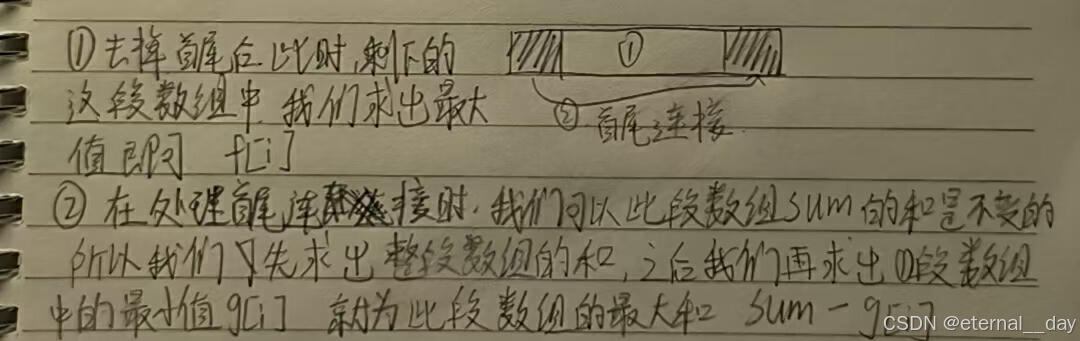 ①去掉首尾后此时,剩下的
①
这段数组中,我们求出最大
② 首尾连接
值即可 f[i]
② 在处理首尾连接时,我们可以此段数组sum的和是不变的
所以我们可先求出整段数组的和,之后我们再求出①段数组
中的最小值g[i] 就为此段数组的最大和 sum - g[i]
CSDN @eternal__day